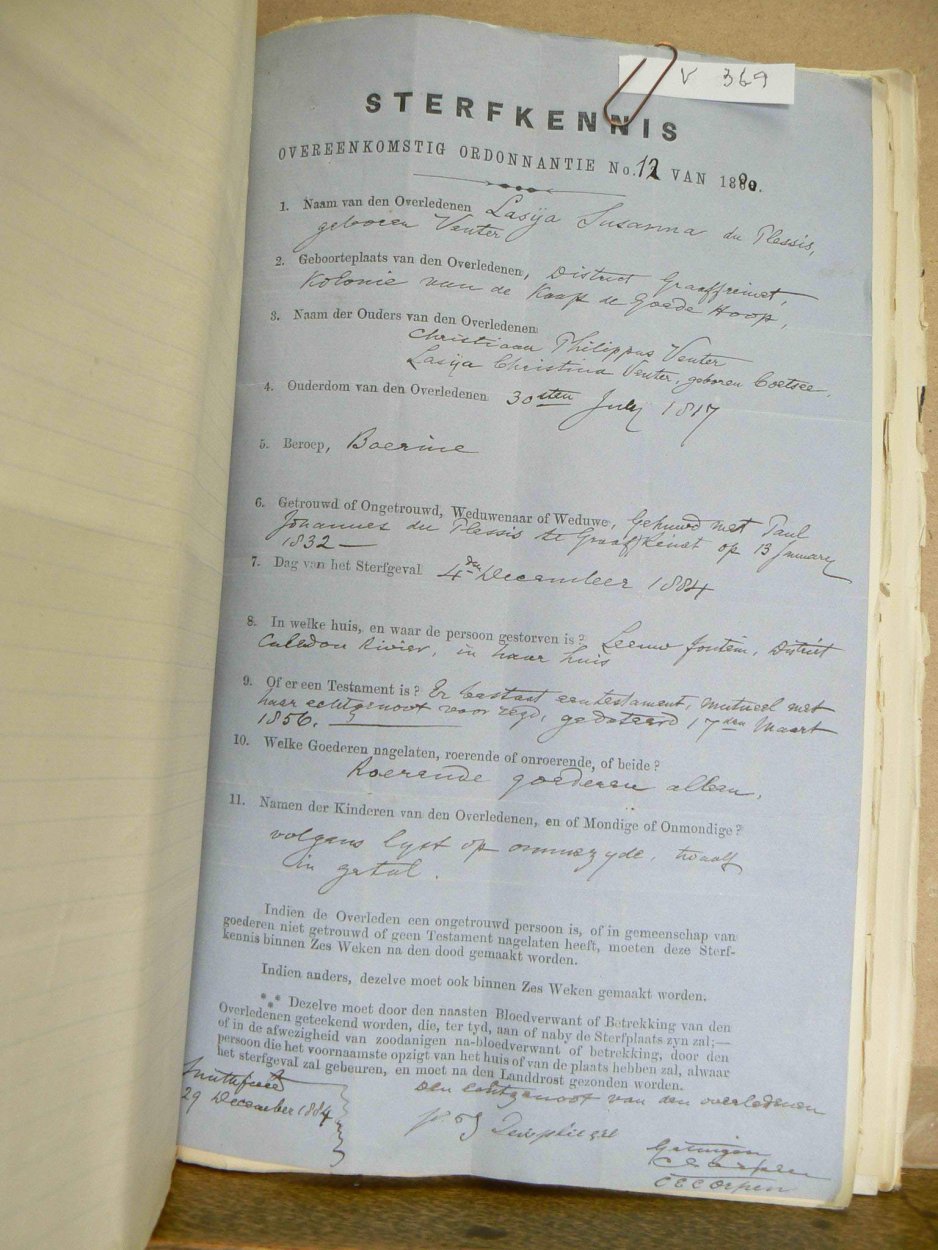 V 369
STERFKENNIS
OVEREENKOMSTIG ORDONNANTIE No. 12 VAN 1880.
1. Naam van den Overledenen Lasya Susanna du Plessis,
geboren Venter
2. Geboorteplaats van den Overledenen, District Graaffreinet,
Kolonie van de Kaap de Goede Hoop,
3. Naam der Ouders van den Overledenen
Christiaan Philippus Venter
Lasya Christina Venter, geboren Coetsee.
4. Ouderdom van den Overledenen 30sten July 1817
5. Beroep, Boerine
6. Getrouwd of Ongetrouwd, Weduwenaar of Weduwe, Gehuwd met Paul
Johannes du Plessis te Graaff Reinet op 13 January
1832 —
7. Dag van het Sterfgeval 4den December 1884
8. In welke huis, en waar de persoon gestorven is? Leeuw fontein, District
Caledon Rivier, in haar huis
9. Of er een Testament is? Er bestaat een testament, mutueel met
haar echtgenoot voorzegd, gedateerd 17den Maart
1856.
10. Welke Goederen nagelaten, roerende of onroerende, of beide?
Roerende goederen alleen,
11. Namen der Kinderen van den Overledenen, en of Mondige of Onmondige?
volgens lyst op ommezyde, twaalf
in getal.
Indien de Overleden een ongetrouwd persoon is, of in gemeenschap van
goederen niet getrouwd of geen Testament nagelaten heeft, moeten deze Sterf-
kennis binnen Zes Weken na den dood gemaakt worden.
Indien anders, dezelve moet ook binnen Zes Weken gemaakt worden.
⁂ Dezelve moet door den naasten Bloedverwant of Betrekking van den
Overledenen geteekend worden, die, ter tyd, aan of naby de Sterfplaats zyn zal;—
of in de afwezigheid van zoodanigen na-bloedverwant of betrekking, door den
persoon die het voornaamste opzigt van het huis of van de plaats hebben zal, alwaar
het sterfgeval zal gebeuren, en moet na den Landdrost gezonden worden.
Smithfield
29 December 1884
Den echtgenoot van den overledenen
Getuigen
C E C Orpen